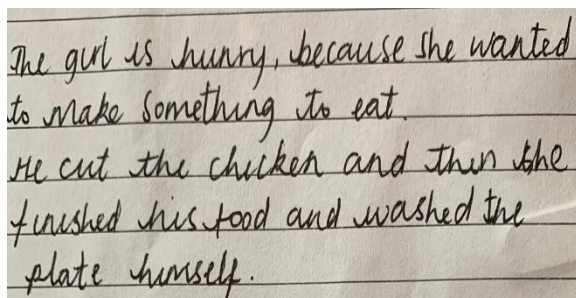 The girl is hunry, because she wanted
to make something to eat.
He cut the chicken and then she
finished his food and washed the
plate himself.